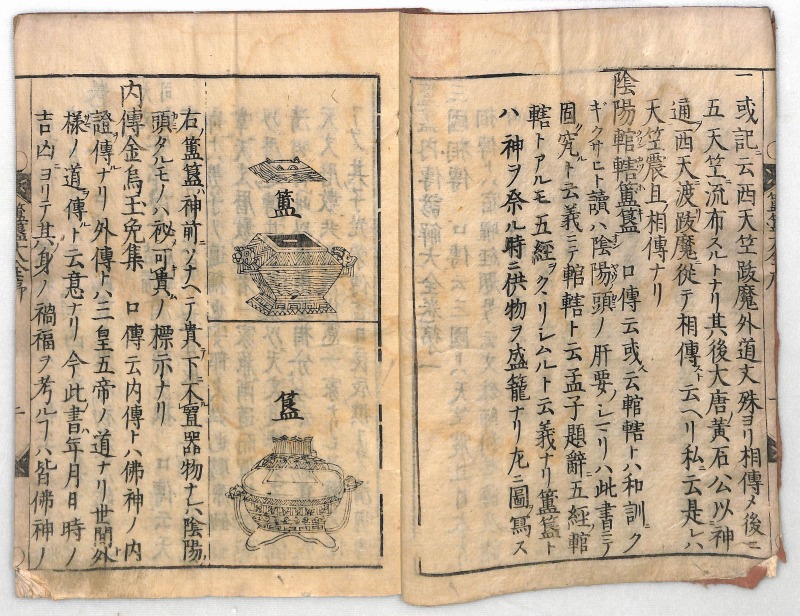 一或記ニ云西天竺跋魔外道文殊ヨリ相傳メ後ニ
五天竺ニ流布スルトナリ其後大唐ノ黄石公以神
通ヲ西天ニ渡跋魔ニ從テ相傳ストモ云ヘリ私ニ云是レハ
天竺震旦ノ相傳ナリ
陰陽輨轄簠簋 口傳ニ云或ハ云輨轄トハ和訓ク
ギクサビト讀ハ陰陽頭ノ肝要ノ
固究ルト云義ニテ輨轄ト云孟子題辭ニ五經ノ輨
轄トアルモ五經ヲ ト云義ナリ簠簋ト
ハ神ヲ祭ル時ニ供物ヲ盛籠ナリ左ニ圖寫ス
簠
簋
右簠簋ハ神前ニソナヘテ貴ノ下ニ不置器物ナレハ陰陽ノ
頭タルモノハ秘ノ可貴ノ標示ナリ
内傳金烏玉兔集 口傳ニ云内傳トハ佛神ノ内
證ノ傳ナリ外傳トハ三皇五帝ノ道ナリ世間外
樣ノ道ノ傳ト云意ナリ今此書ハ年月日時ノ
吉凶ニヨリテ其身ノ禍福ヲ考ルヿハ皆佛神ノ